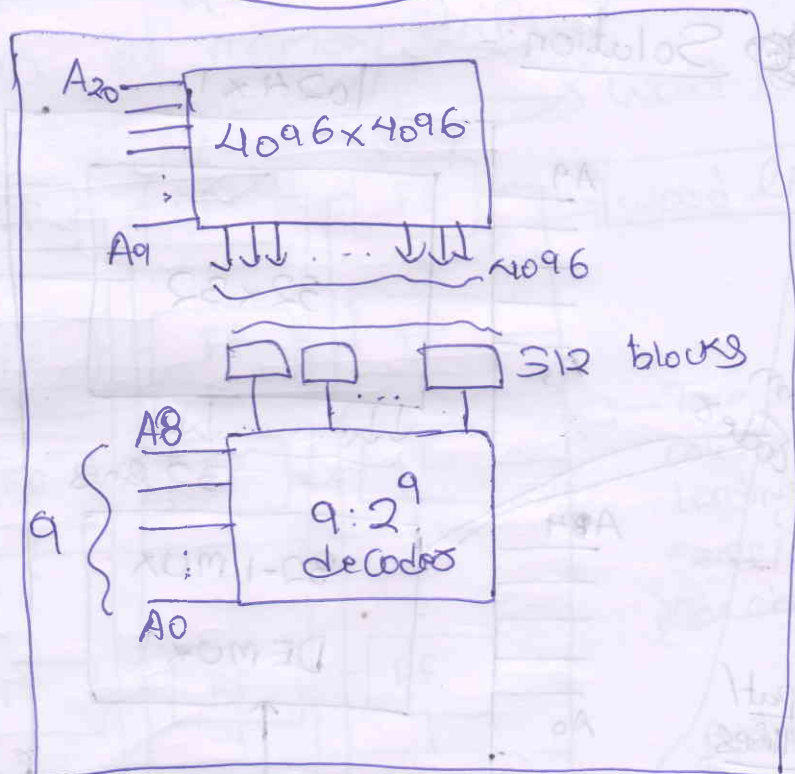 Solution
A20
4096 x 4096
A9
4096
512 blocks
A8
9
9:2^9
decoder
A0